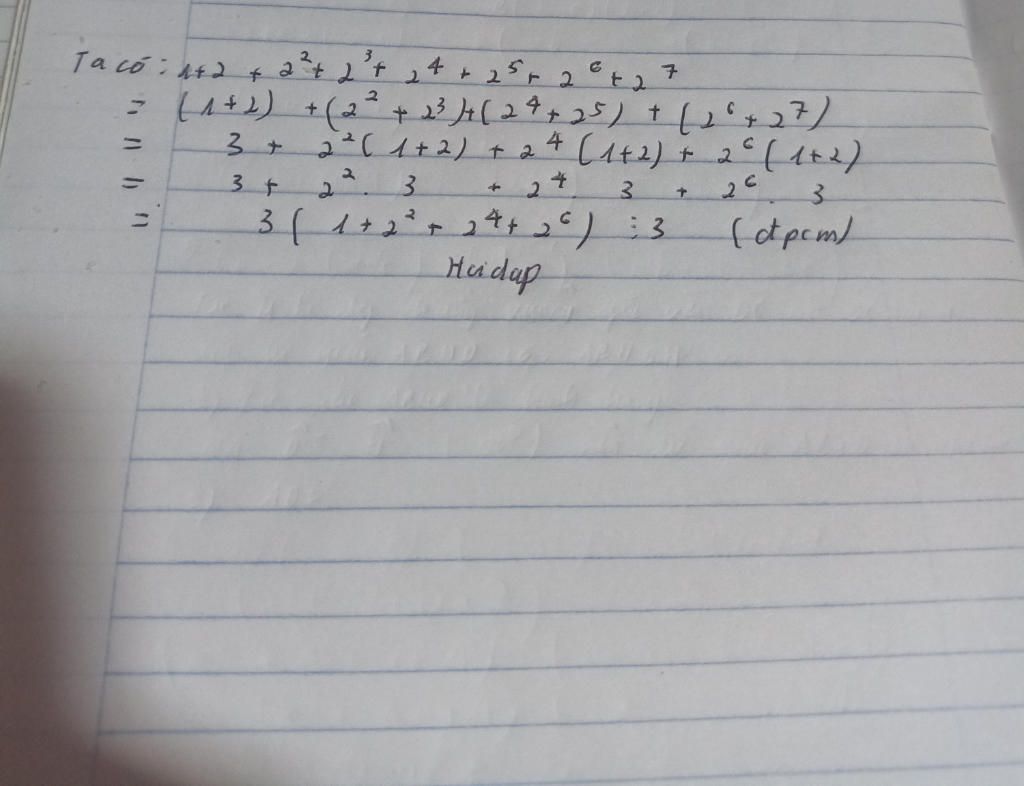 Ta có: 1+2 + 2² + 2³ + 2⁴ + 2⁵ + 2⁶ + 2⁷
= (1+2) + (2² + 2³) + (2⁴ + 2⁵) + (2⁶ + 2⁷)
= 3 + 2² (1+2) + 2⁴ (1+2) + 2⁶ (1+2)
= 3 + 2² . 3 + 2⁴ . 3 + 2⁶ . 3
= 3 ( 1 + 2² + 2⁴ + 2⁶ ) ⋮ 3 (đpcm)
Hoidap